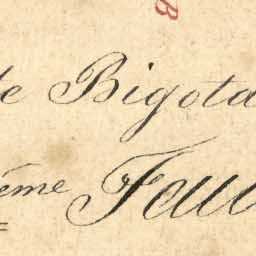 B
te Bigota
ème Fau